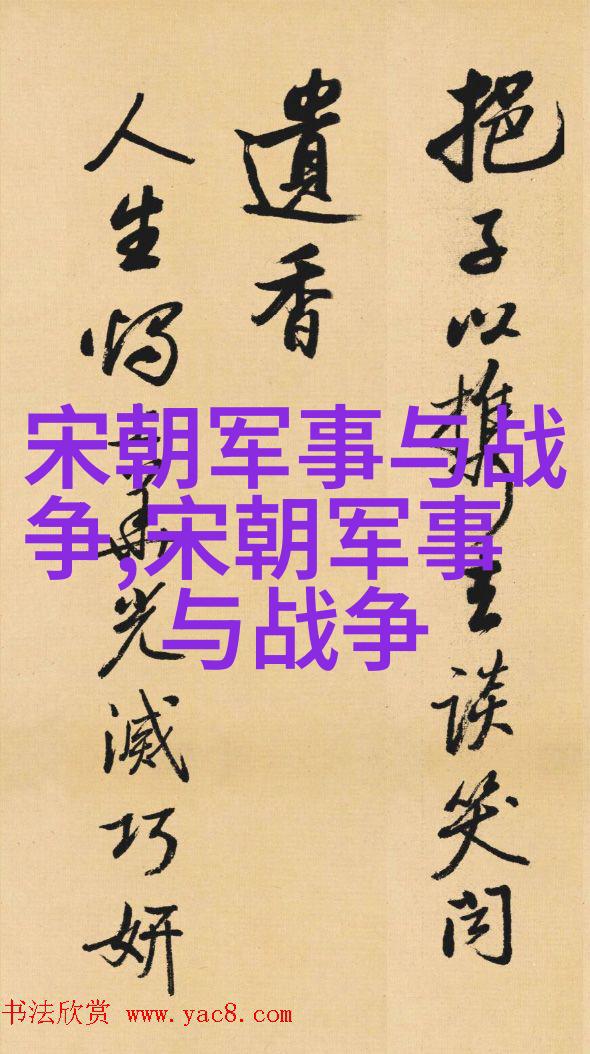 挹子以携主談笑间
遺香
人生燭光滅巧妍
宋朝军事与战
争,宋朝军事
与战争
书法欣赏 www.yac8.com